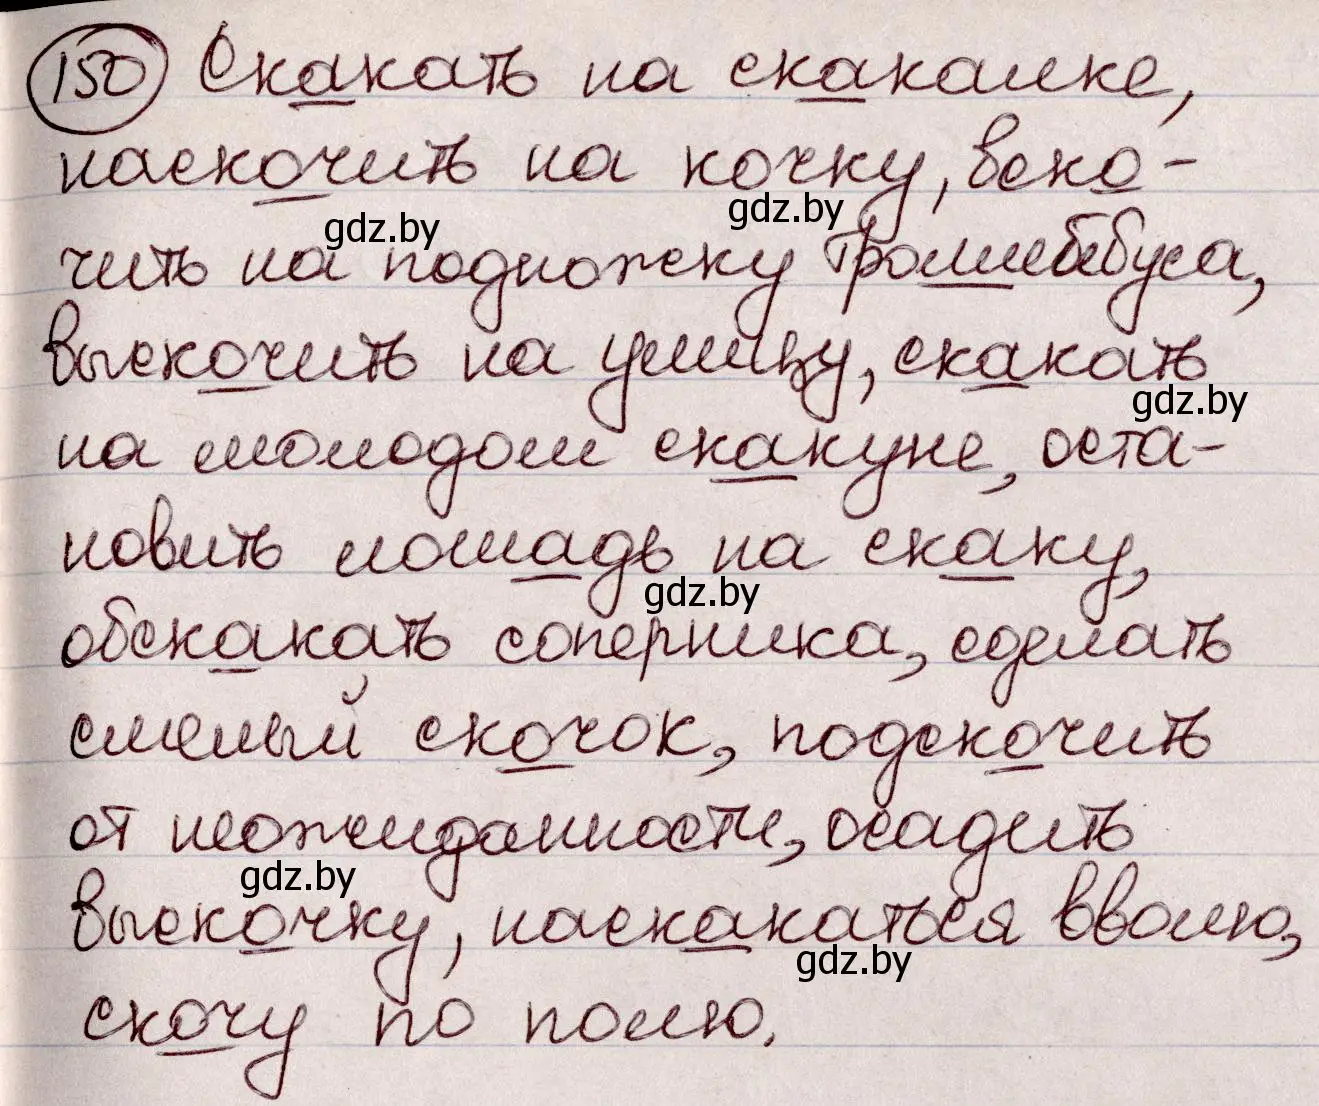 150 Скакать на скакалке,
наскочить на кочку, вско-
gdz.by gdz.by
чить на подножку троллейбуса,
выскочить на улицу, скакать
gdz.by
на молодом скакуне, оста-
новить лошадь на скаку,
gdz.by
обскакать соперника, сделать
смелый скочок, подскочить
от неожиданности, осадить
gdz.by
выскочку, наскакаться вволю,
gdz.by
скочу по полю.